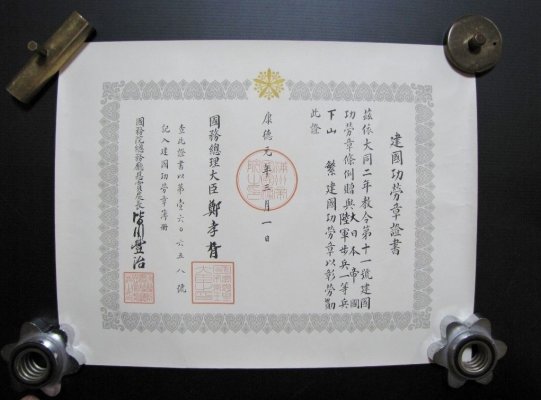 建國功勞章證書
茲依大同二年敎令第十一號建國
功勞章條例贈與大日本帝國
陸軍步兵一等兵
下山 繁建國功勞章以彰勞勳
此證
康德元年三月一日
國務總理大臣 鄭孝胥
查此證書以第壹六〇六五八號
記入建國功勞章簿冊
國務院總務廳恩賞處長 皆川豐治